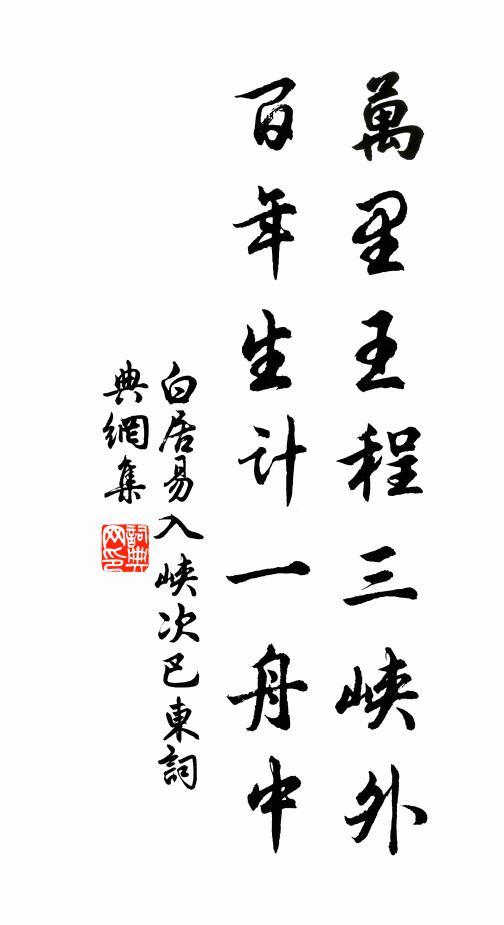 萬里王程三峽外
百年生計一舟中
白居易入峽次巴東詞
典網集
詞典
网印